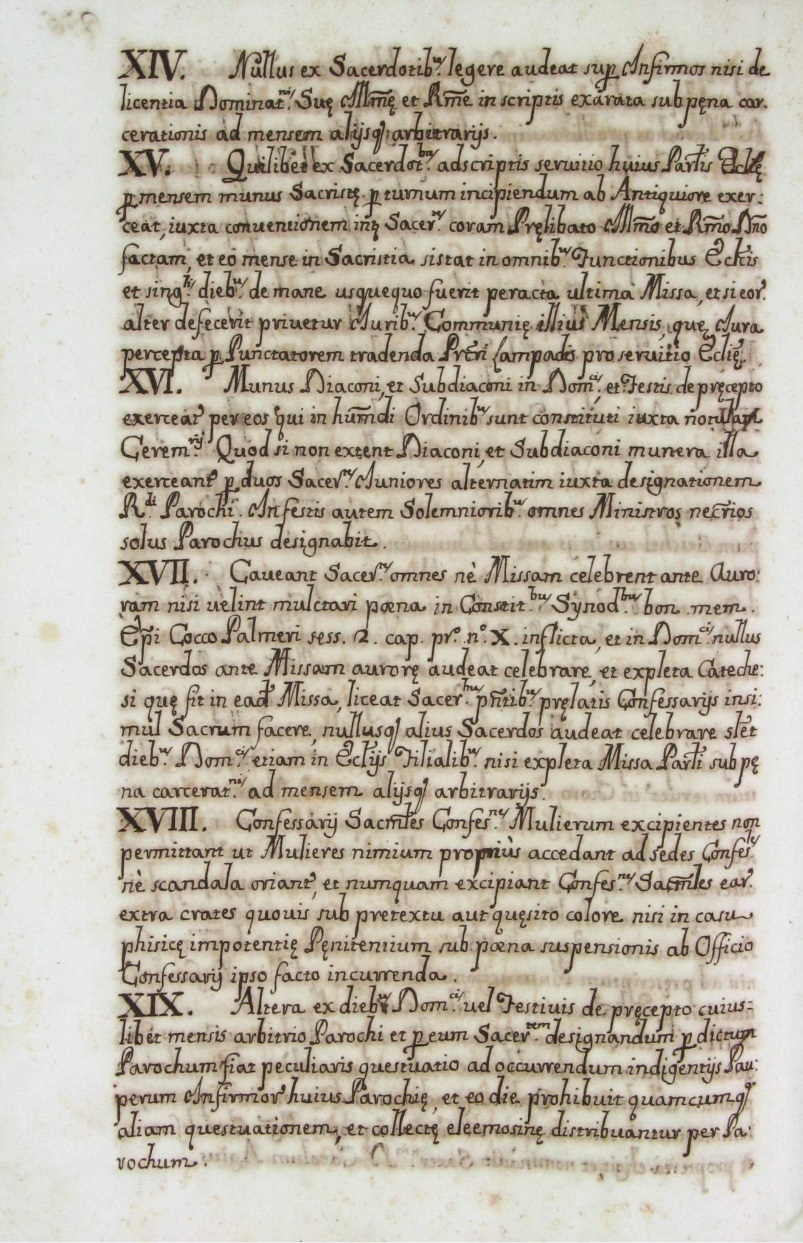 XIV. Nullus ex Sacerdotib.ꝰ legere audeat sup̱ Infirmos nisi de
licentia Dominat.nis Suę Illm̃ę et Rm̃ę in scriptis exarata sub pęna car.
cerationis ad mensem alijsq̃ arbitrarijs.
XV. Quilibet ex Sacerdot.bus adscriptis seruitio huius Parłis Ecłę
p̱ mensem munus Sacristę p̱ turnum incipiendum ab Antiquiore exer:
ceat, iuxta conuentionem int̃ Sacer.es coram Pręlibato Illm̃o et Rm̃o Dño
factam, et eo mense in Sacristia sistat in omnib.ꝰ Functionibus Ecłis
et sing.lis dieb.ꝰ de mane usquequo fuerit peracta ultima Missa, et si eor.
alter defecerit priuetur Iurib.ꝰ Communię illius Mensis, quę Iura
percepta p̱ Punctatorem tradenda Prẽri Lampadis pro seruitio Eclię.
XVI. Munus Diaconi, et Subdiaconi in Dom.cis, et Festis de pręcepto
exerceat.r per eos qui in hum̃di Ordinib.ꝰ sunt constituti iuxta not
Cerem.rij Quod si non extent Diaconi, et Subdiaconi munera illa
exerceant.r p̱ duos Sacer.es Iuniores alternatim iuxta designationem
R.di Parochi. In festis autem Solemniorib.ꝰ omnes Ministros necr̃ios
solus Parochus designabit.
XVII. Caueant Sacer.es omnes nè Missam celebrent ante Auro:
ram nisi uelint mulctari pœna in Constit.bus Synod.bus bon. mem.
Ep̃i Cocco Palmeri sess. 2. cap. pr.o n.o X. inflicta, et in Dom.cis nullus
Sacerdos ante Missam aurorę audeat celebrare, et expleta Cateche:
si quę fit in ead.m Missa, liceat Sacer.bus pñtib.ꝰ pręlatis Confessarijs insi:
mul Sacrum facere, nullusq̃ alius Sacerdos audeat celebrare słet
dieb.ꝰ Dom.cis etiam in Ecłijs Filialib.ꝰ nisi expleta Missa Parłi sub pę
na carcerat.nis ad mensem alijsq̃ arbitrarijs.
XVIII. Confessarij Sacm̃les Confes.nes Mulierum excipientes non
permittant ut Mulieres nimium propriùs accedant ad sedes Confes.les
nè scandala oriant.r, et numquam excipiant Confes.nes Sacm̃les ear.
extra crates quouis sub pretextu aut quęsito colore nisi in casu
phisicę impotentię Pęnitentium sub pœna suspensionis ab Officio
Confessarij ipso facto incurrenda.
XIX. Altera ex dieb.ꝰ Dom.cis uel Festiuis de pręcepto cuius-
libet mensis arbitrio Parochi et p̱ eum Sacer.tem designandum p̱ dictum
Parochum fiat peculiaris questuatio ad occurrendum indigentijs Pau:
perum Infirmor. huius Parochię, et eo die prohibuit quamcumq̃
aliam questuationem, et collectę eleemosinę distribuantur per Pa:
rochum.